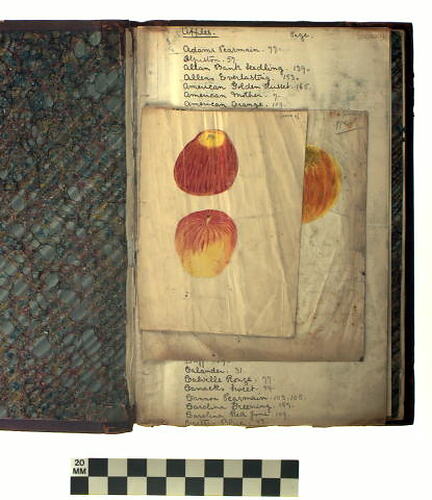 Apples. Page.
Adams Pearmain. 77.
Alfriston. 57.
Allan Bank Seedling. 139.
Allens Everlasting. 153.
American Golden Russet. 165.
American Mother. 7.
American Orange. 109.
Calander. 31.
Calville Rouge. 77.
Cannon Pearmain. 103. 105.
Carolina Greening. 159.
Carolina Red June. 109.
20
MM